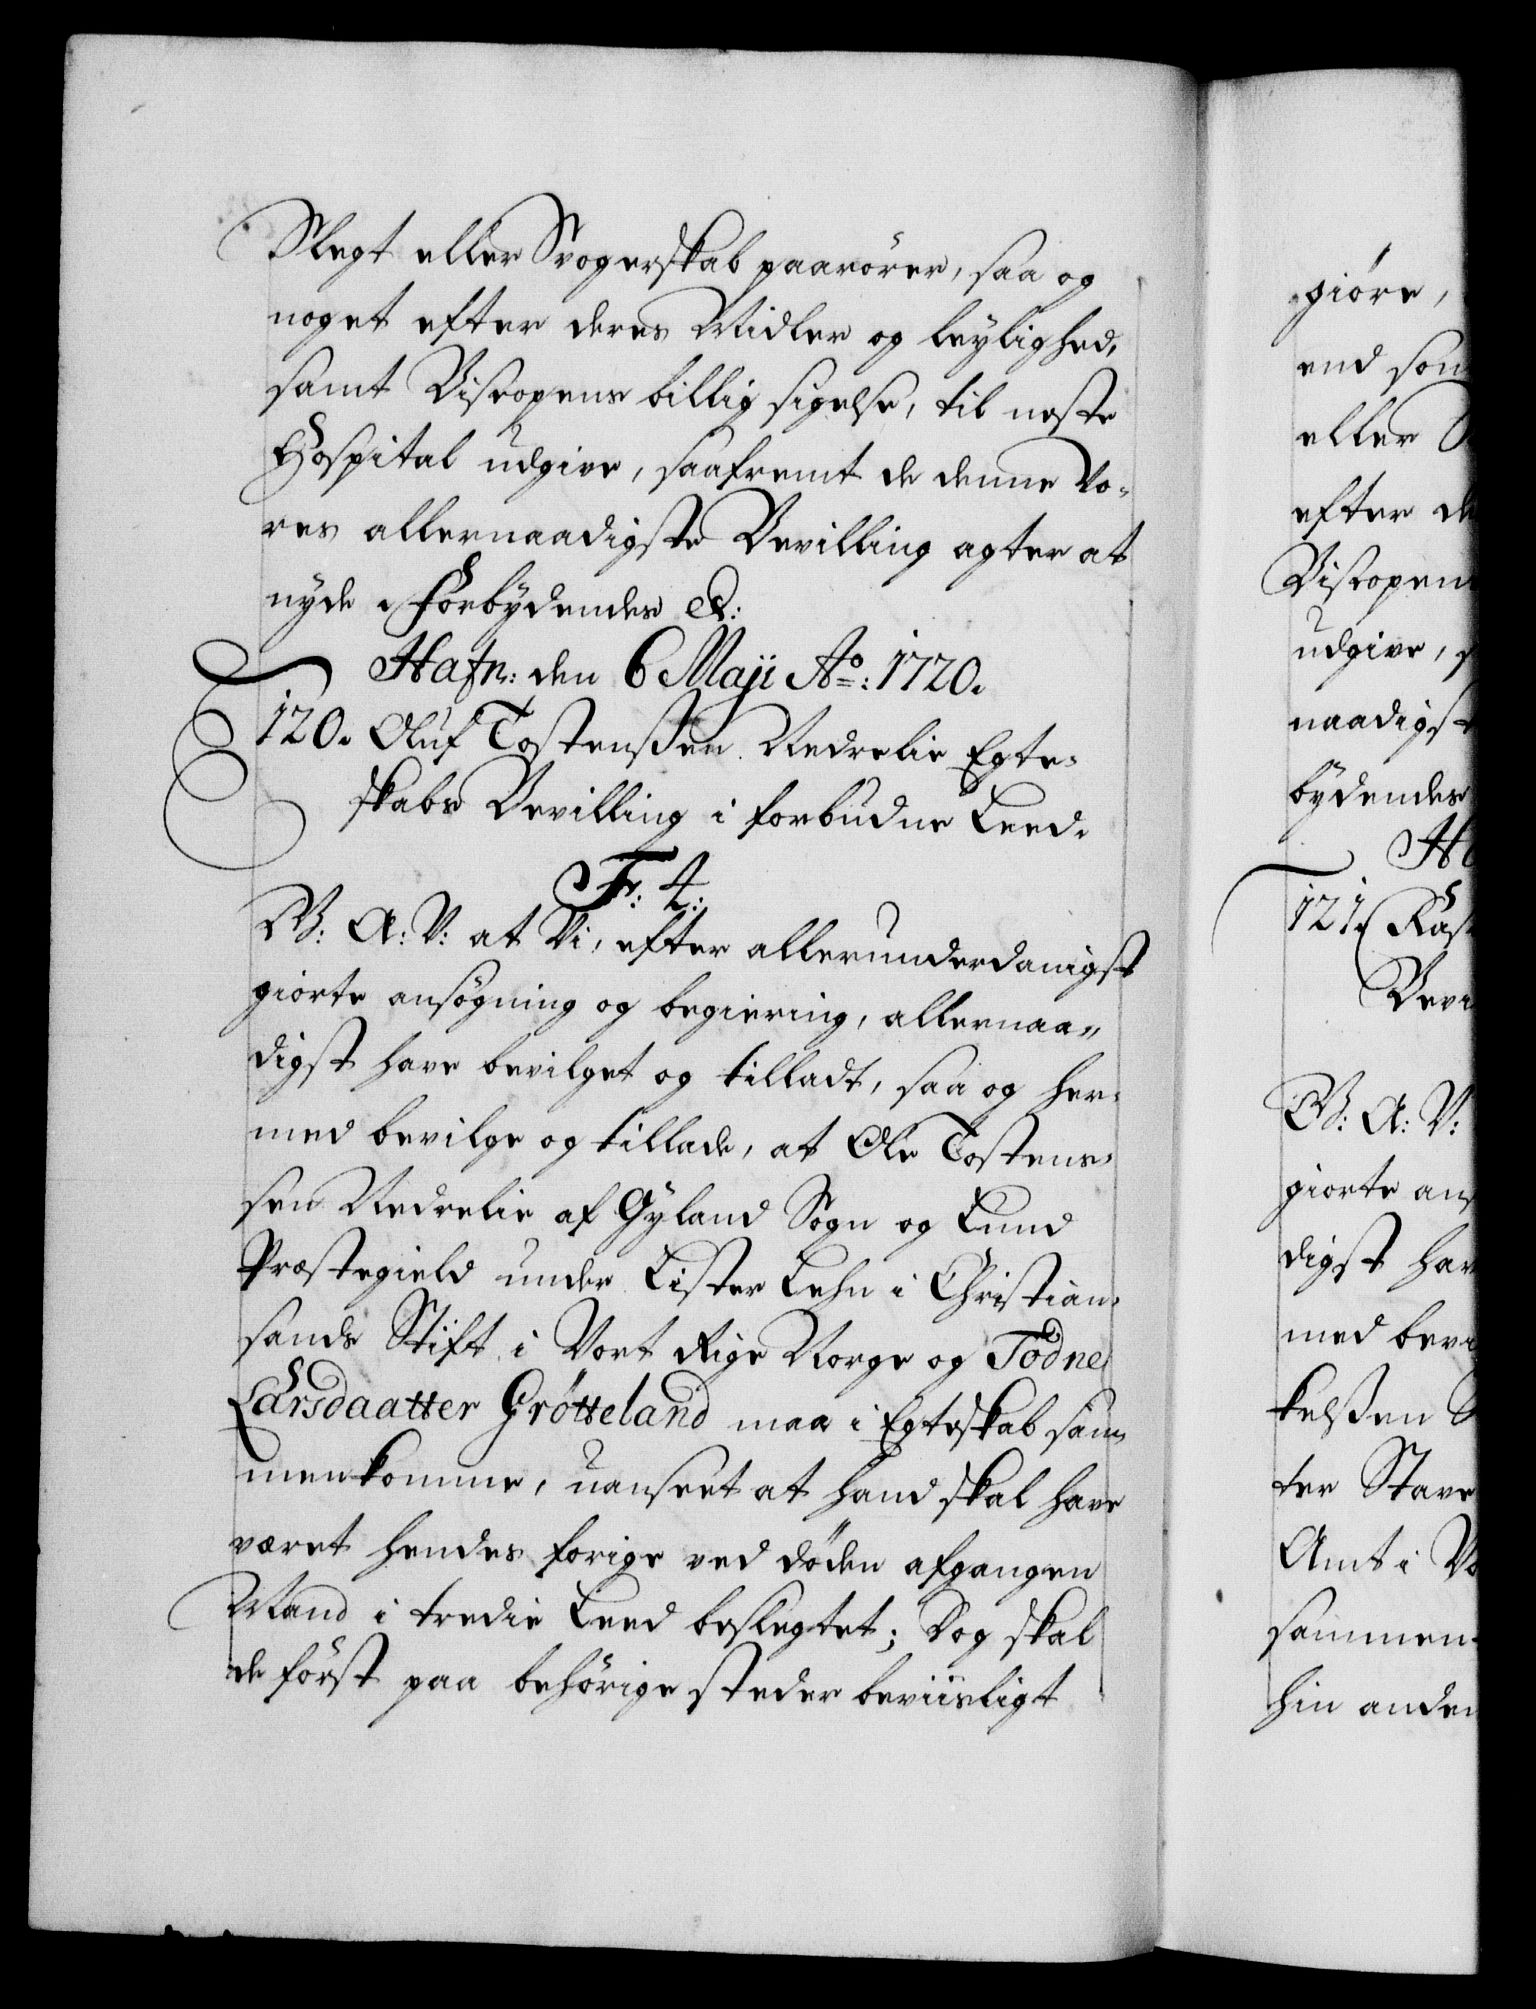 Slegt eller Svogerskab paarörer, saa og
noget efter deres Midler og leylighed,
samt Biscopens billig sigelse, til neste
Hospital udgive, saafremt de denne Vo-
res allernaadigste Bevilling agter at
nyde. Forbydendes &:
Hafn: den 6 Maji Ao: 1720.
120. Oluf Tostenssen Nedrelie Egte-
skabs Bevilling i forbudne Leed.
F: 4:
W: A: V: at Vi, efter allerunderdanigst
giorte ansögning og begiering, allernaa-
digst have bevilget og tilladt, saa og her-
med bevilge og tillade, at Ole Tostens-
sen Nedrelie af Gyland Sogn og Lund
Præstegield under Lister Lehn i Christian-
sands Stift i Vort Rige Norge og Tödne
Larsdaatter Grötteland maa i Egteskab sam-
menkomme, uanseet at hand skal have
været hendes forige ved döden afgangen
Mand i tredie Leed beslegtet; Dog skal
de först paa behörige steder beviisligt
giöre,
end som
eller
efter de
Biscopens
udgive, s
naadigst
bydendes
Ha
121. Ras
Bevi
W: A: V:
giorte ans
digst hav
med bevi
kelssen S
ter Stave
Amt i Vo
sammen-
hin anden